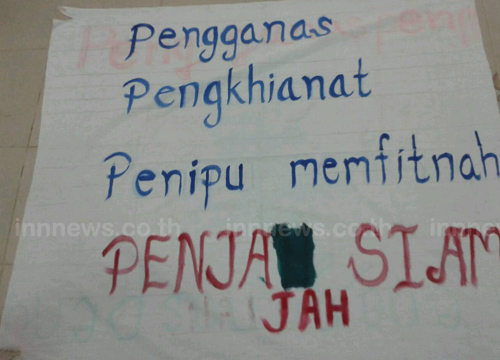 Pengganas
Pengkhianat
Penipu memfitnah
innnews.co.th innnews.co.th
PENJA SIAM
JAH